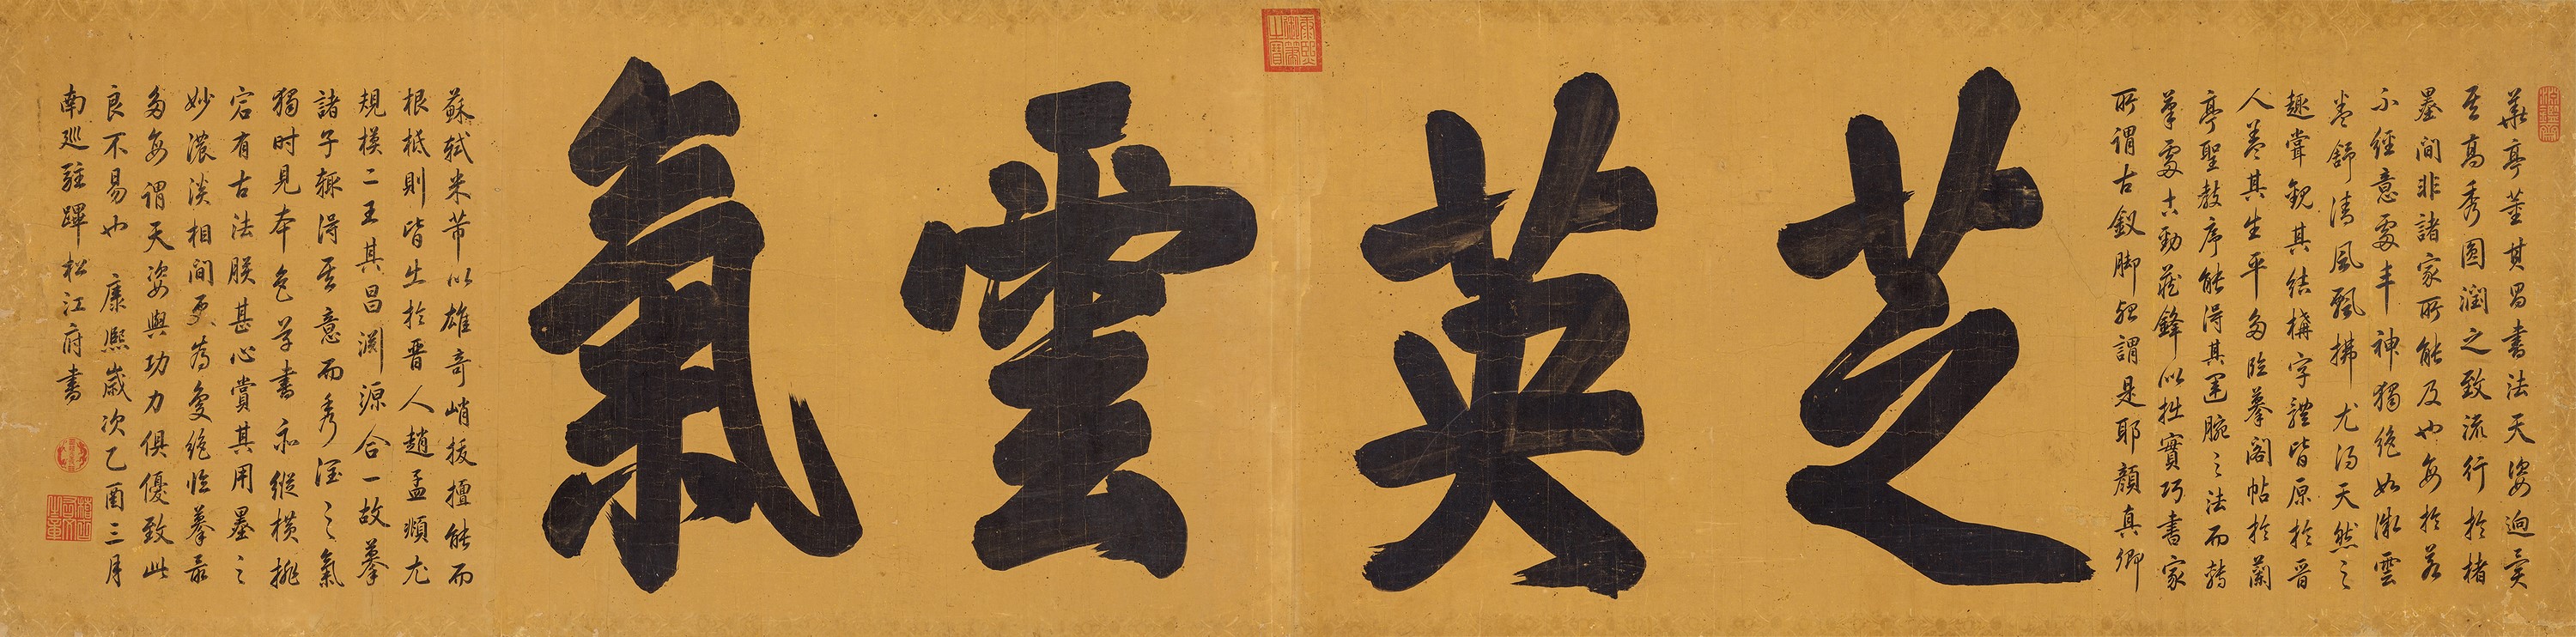 淵鑒齋
華亭董其昌書法天姿迥異
其高秀圓潤之致流行於楮
墨間非諸家所能及也每於若
不經意處丰神獨絕如微雲
卷舒清風飄拂尤得天然之
趣嘗觀其結構字體皆原於晉
人蓋其生平多臨摹閣帖於蘭
亭聖教序能得其運腕之法而轉
筆處古勁藏鋒似拙實巧書家
所謂古釵脚殆謂是耶顏真卿
芝英雲氣
康熙御筆之寶
蘇軾米芾以雄奇峭拔擅能而
根柢則皆出於晉人趙孟頫尤
規模二王其昌淵源合一故摹
諸子輒得其意而秀潤之氣
獨时見本色草書亦縱橫排
宕有古法朕甚心賞其用墨之
妙濃淡相間更為夐絕臨摹最
多每謂天姿與功力俱優致此
良不易也 康熙歲次乙酉三月
南巡駐蹕松江府書
稽古右文之章